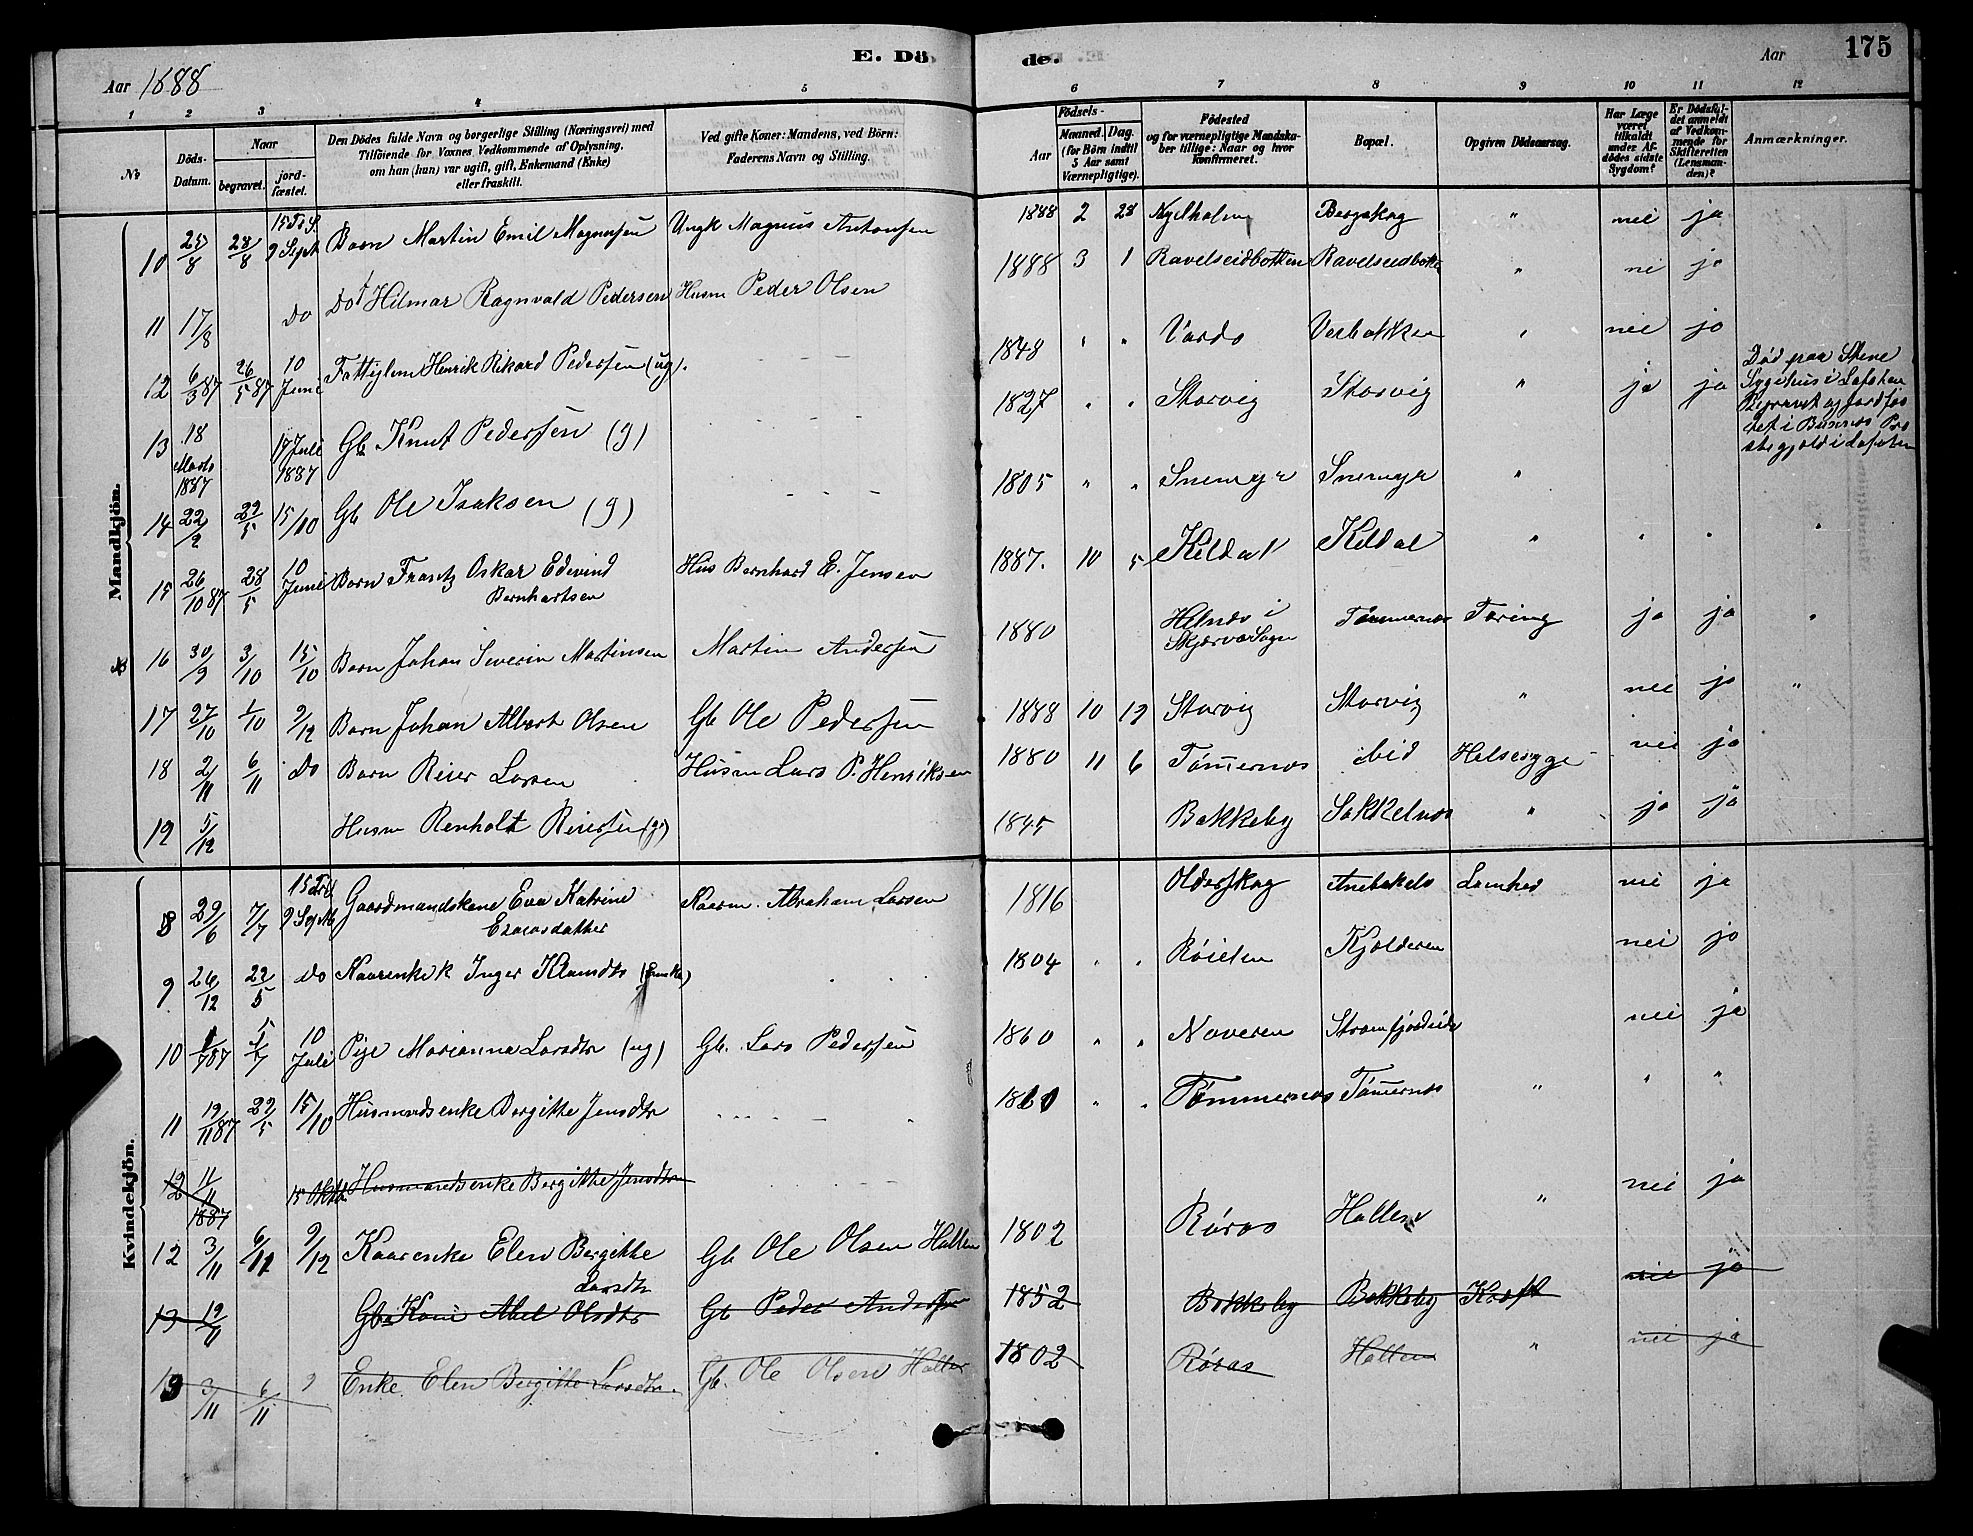 E. Döde.
Aar 1888
Aar 175
1 2 3 4 5 6 7 8 9 10 11 12
No
Döds-Datum.
Naar
begravet.
jord-fæstet.
Den Dödes fulde Navn og borgerlige Stilling (Næringsvei) med
Tilföiende for Voxnes Vedkommende af Oplysning,
om han (hun) var ugift, gift, Enkemand (Enke)
eller fraskilt.
Ved gifte Koner: Mandens, ved Börn:
Faderens Navn og Stilling.
Födsels-
Aar
Maaned. Dag.
(for Börn indtil
5 Aar samt
Værnepligtige).
Födested
og for værnepligtige Mandska-
ber tillige: Naar og hvor
konfirmeret.
Bopæl.
Opgiven Dödsaarsag.
Har Læge
været
tilkaldt
under Af-
dödes sidste
Sygdom?
Er Dödsfal-
det anmeldt
af Vedkom-
mende for
Skifteretten
(Lensman-
den)?
Anmærkninger.
Mandkjön.
10 25/8 28/8 9 Sept Barn Martin Emil Magnusen Ungk Magnus Antonsen 1888 2 28 Bergskog " nei ja
11 17/8 Do Do Hilmar Ragnvald Pedersen Husm Peder Olsen 1888 3 1 Ravelseidbotten " nei ja
12 6/3 87 26/5 87 10 Juni Henrik Rikard Pedersen (ug). 1848 " " Vardø " nei ja
13 18 Marts 1887 17 Juli 1887 Gb Knut Pedersen (g) 1827 " " Storvig Storvig " ja ja
Død paa Stene
Sygehus i Lofoten
Begravet og jordfæs
tet i Buksnes Pre
stegjeld i Lofoten
14 22/2 22/5 15/10 Gb Ole Isaksen (g) 1805 " " Snemyr Snemyr "
15 26/10 87 28/5 10 Juni Barn Frantz Oskar Edevind
Bernhartsen Hus Bernhard E. Jensen 1887. 10 5 Kildal Kildal " " " "
16 30/9 3/10 15/10 Barn Johan Severin Martinsen Martin Andersen 1880 Hilnes i
Skjervø Sogn Tømmernes Tæring ja ja "
17 27/10 1/10 9/12 Barn Johan Albert Olsen Gb Ole Pedersen 1888 10 12 Storvig Storvig " nei ja "
18 2/11 6/11 Do Barn Reier Larsen Husm Lars P. Henriksen 1880 11 6 Tømernes ibid Halsesyge nei ja
19 5/12 Husm Renholt Reiersen (g) 1845 Bakkeby Sakkelnes " ja ja
Kvindekjön.
8 29/6 7/7 9 Sept Gaardmandskone Eva Katrine
Esaiasdatter Abraham Larsen 1816 Olderskog Lamhed nei ja
9 26/12 22/5 Do Inger 1804 " " Røielen Kjølderen nei ja
10 1/7 87 5/7 10 Juli Pige Marianna Larsdtr (ug) Gb. Lars Pedersen 1860 " " Naveren Straumfjordeide nei ja
11 12/11 87 22/5 15/10 Husmandsenke Bergitte Jensdtr " " Tømmernes Tømernes " " "
12 11/11 1887 15 Oktb Husmandsenke Bergitte Jensdtr
12 3/11 6/11 9/12 Kaarenke Elen Bergitte
Larsdtr Gb Ole Olsen Hallen 1802 Røros Hallen " nei ja
13 12/11 Gb Abel Olsdtr Gb Peder Andersen 1852 Bakkeby Bakkeby Kræft nei ja
13 3/11 6/11 9 Enke Elen Bergitte Larsdtr. Gb. Ole Olsen Hallen 1802 Røros Hallen " nei ja